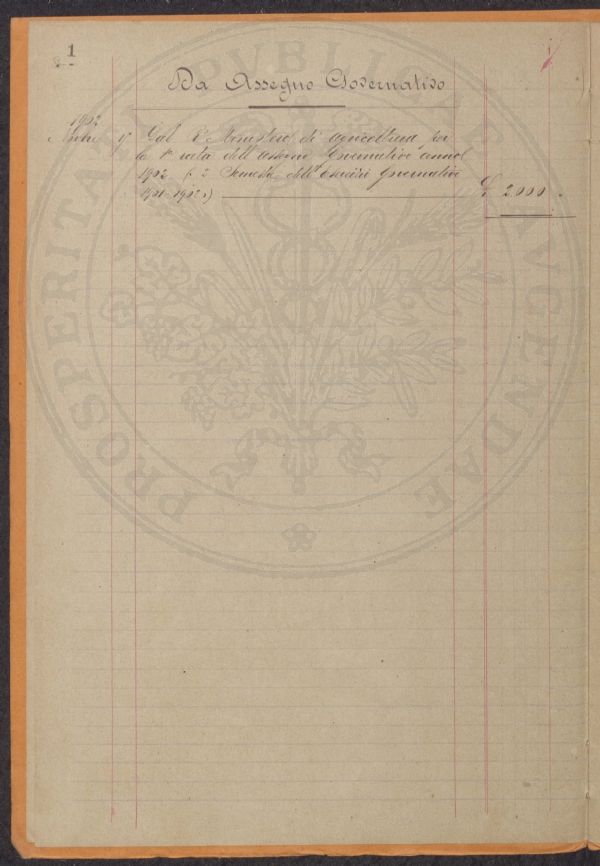 1
Da Assegno Governativo
1902
17 Dal R° Ministero di agricoltura per
la 1ª rata dell'assegno Governativo annol
1902 (2° Semestre dell'esercizio governativo
1901-1902.) £ 2000
PROSPERITATI PVBLICAE AVGENDAE